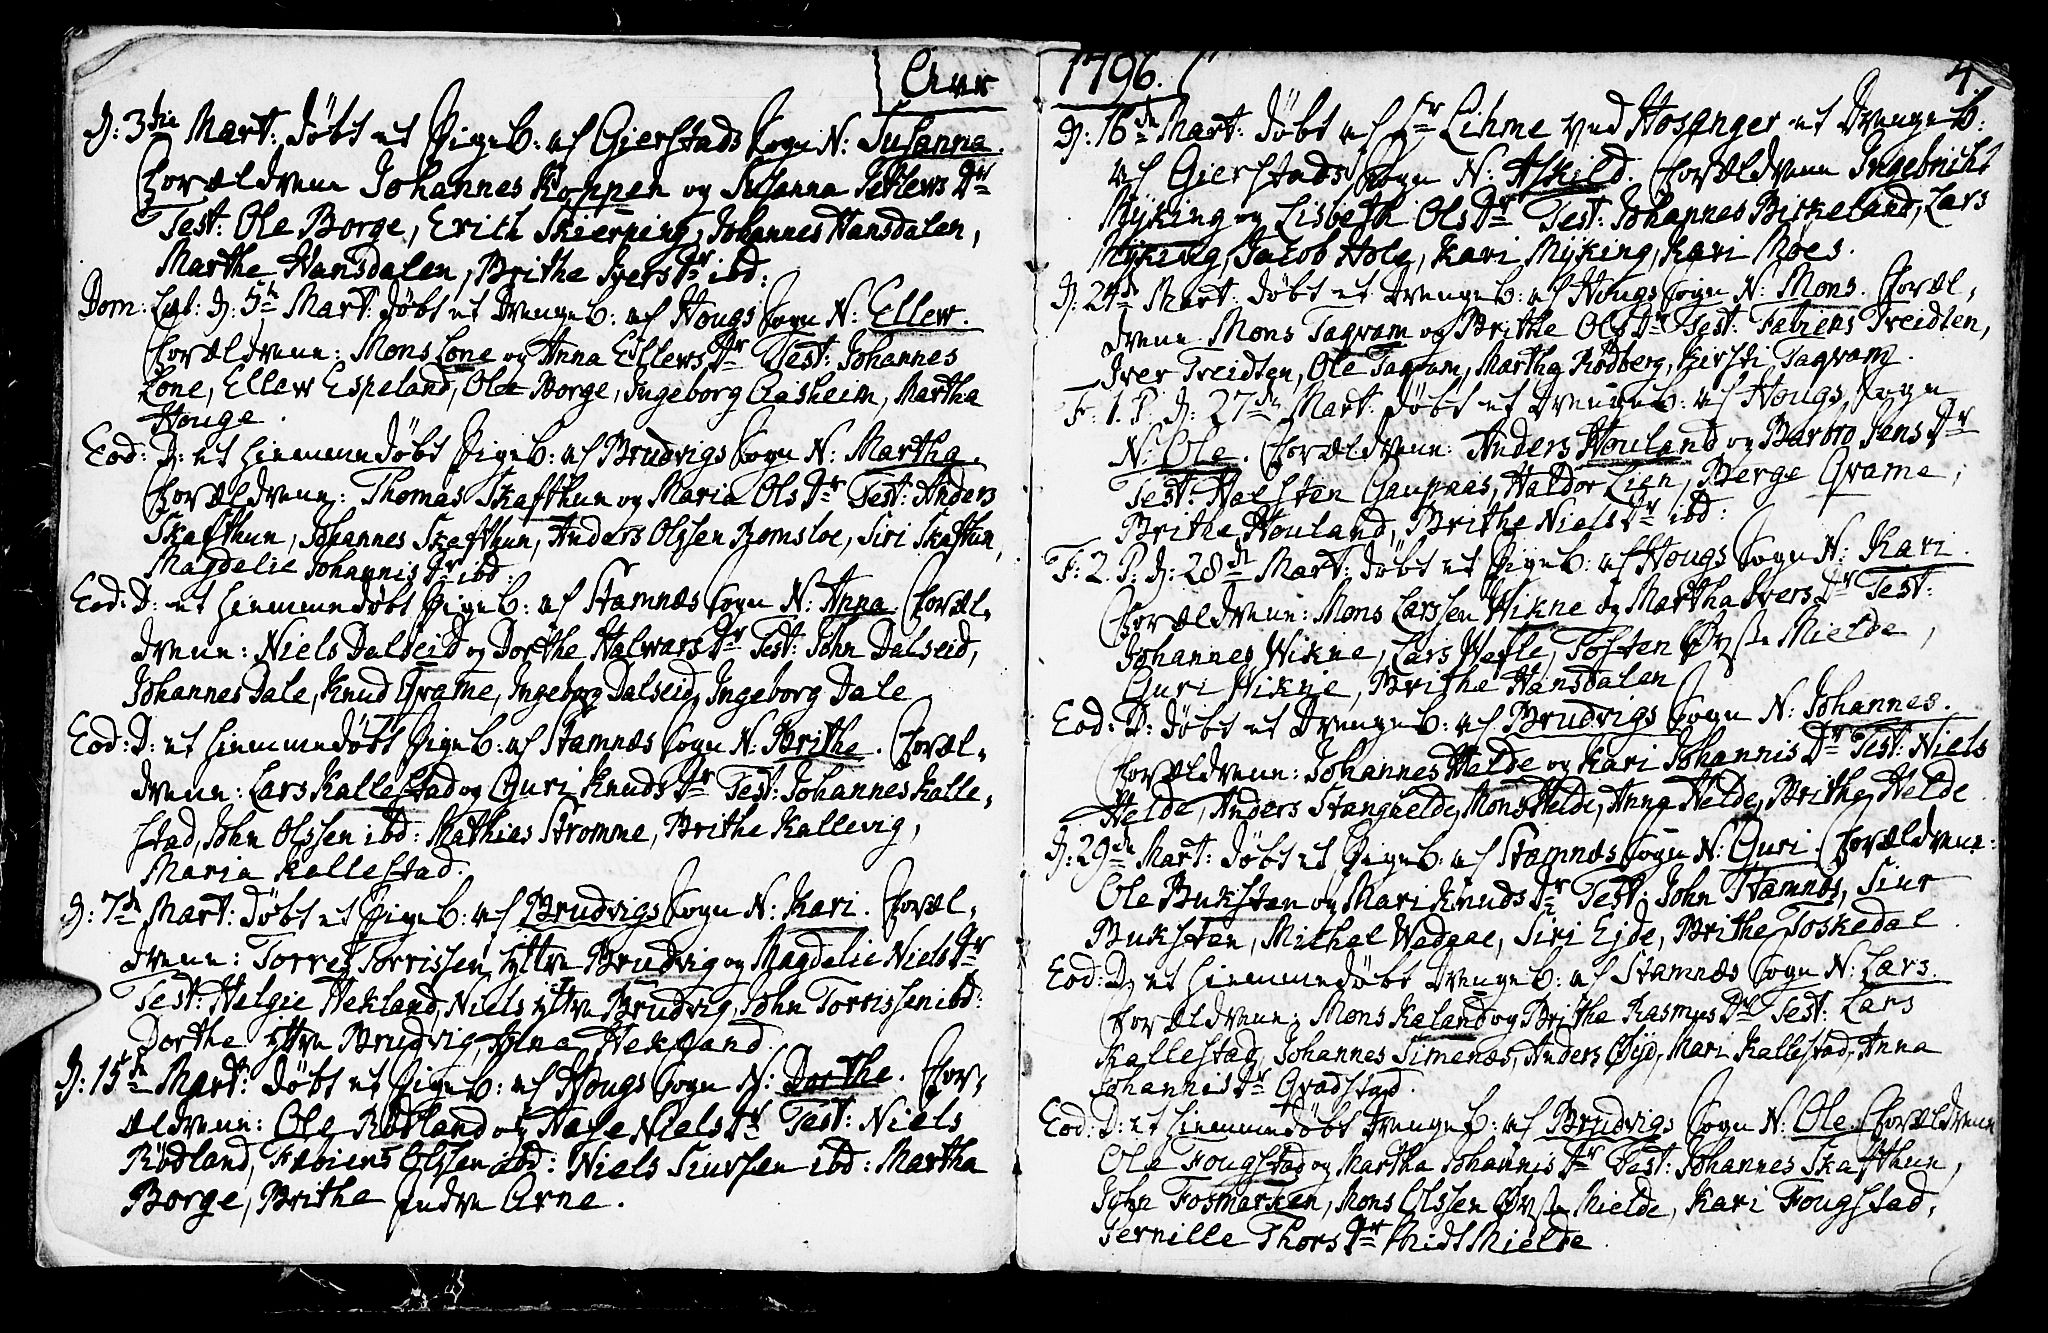 Aar
D: 3die Mart: døbt et Pigeb: af Gierstads Sogn N: Susanna.
Forældrene Johannes Koppen og Susanna Dr
Test: Ole Borge, Erich Skierping, Johannes Hansdalen,
Marthe Hansdalen, Brithe Ivers Dr ibd:
Dom: Læt: D: 5te Mart: døbt et Drengeb: af Hougs Sogn N: Ellew.
Forældrene: Mons Lone og Anna Ellews Dr Test: Johannes
Lone, Ellew Espeland, Ole Borge, Ingeborg Aasheim, Martha
Houge.
Eod: D: et hiemmedøbt Pigeb: af Brudvigs Sogn N: Martha.
Forældrene: Thomas Skafthun og Maria Ols Dr Test: Anders
Skafthun, Johannes Skafthun, Anders Olssen Romsloe, Siri Skafthun,
Magdelie Johannis Dr ibd:
Eod: D: et hiemmedøbt Pigeb: af Stamnæs Sogn N: Anna. Foræl-
drene: Niels Dalseid og Dorthe Halwars Dr Test: John Dalseid,
Johannes Dale, Knud Qvame, Ingeborg Dalseid, Ingeborg Dale
Eod: D: et hiemmedøbt Pigeb: af Stamnæs Sogn N: Brithe. Foræl-
drene: Lars Kallestad og Guri Knuds Dr Test: Johannes Kalle-
stad, John Olssen ibd: Mathias Stromme, Brithe Kallevig,
Maria Kallestad.
D: 7de Mart: døbt et Pigeb: af Brudvigs Sogn N: Kari. Foræl-
drene: Torres Torrissen yttre Brudvig og Magdelie Niels Dr
Test: Helgie Hekland, Niels yttre Brudvig, John Torrissen ibd:
Dorthe yttre Brudvig, Anna Hekland.
D: 15de Mart: døbt et Pigeb: af Hougs Sogn N: Dorthe. For-
ældrene: Ole Rødland og Niels Dr Test: Niels
Rødland, Fabiens Olssen ibd: Niels Siurssen ibd: Martha
Borge, Brithe indre Arne.
1796.
4.
D: 16de Mart: døbt af Hr Lihme ved Hosanger et Drengeb:
af Gierstads Sogn N: Askild. Forældrene Ingebricht
Myking og Lisbeth Ols Dr Test: Johannes Birkeland, Lars
Myking, Jacob Hole, Kari Myking, Kari Moes.
D: 24de Mart: døbt et Drengeb: af Hougs Sogn N: Mons. Foræl-
drene Mons Tagvam og Brithe Ols Dr Test: Fabiens Treidten,
Iver Treidten, Ole Tagvam, Martha Rødberg, Kirsti Tagvam.
F: 1. P. D: 27de Mart: døbt et Drengeb: af Hougs Sogn
N: Ole. Forældrene: Anders Houland og Barbro Jens Dr
Test: Halsten Gaupaas, Haldor Lien, Berge Qvame,
Brithe Houland, Brithe Niels Dr ibd:
F: 2. P: D: 28de Mart: døbt et Pigeb: af Hougs Sogn N: Kari.
Forældrene: Mons Larssen Wikne og Martha Ivers Dr Test:
Johannes Wikne, Lars Wefle, Tosten Øvste Mielde,
Guri Wikne, Brithe Hansdalen
Eod: D: døbt et Drengeb: af Brudvigs Sogn N: Johannes.
Forældrene: Johannes Helde og Kari Johannis Dr Test: Niels
Helde, Anders Stanghelde, Mons Helde, Anna Helde, Brithe Helde
D: 29de Mart: døbt et Pigeb: af Stamnæs Sogn N: Guri. Forældrene:
Ole Buksten og Mari Knuds Dr Test: John Stamnæs, Siur
Buksten, Mikkel Wadgae, Siri Ejde, Brithe Toskedal.
Eod: D: et hiemmedøbt Drengeb: af Stamnæs Sogn N: Lars.
Forældrene: Mons Kaland og Brithe Rasmus Dr Test: Lars
Kallestad, Johannes Simenæs, Anders Øyd, Mari Kallestad, Anna
Johannis Dr Qvadstad.
Eod: D: et hiemmedøbt Drengeb: af Brudvigs Sogn N: Ole. Forældrene
Ole Fougstad og Martha Johannis Dr Test: Johannes Skafthun,
John Fosmarken, Mons Olssen Øvste Mielde, Kari Fougstad,
Pernille Thors Dr Midt Mielde.